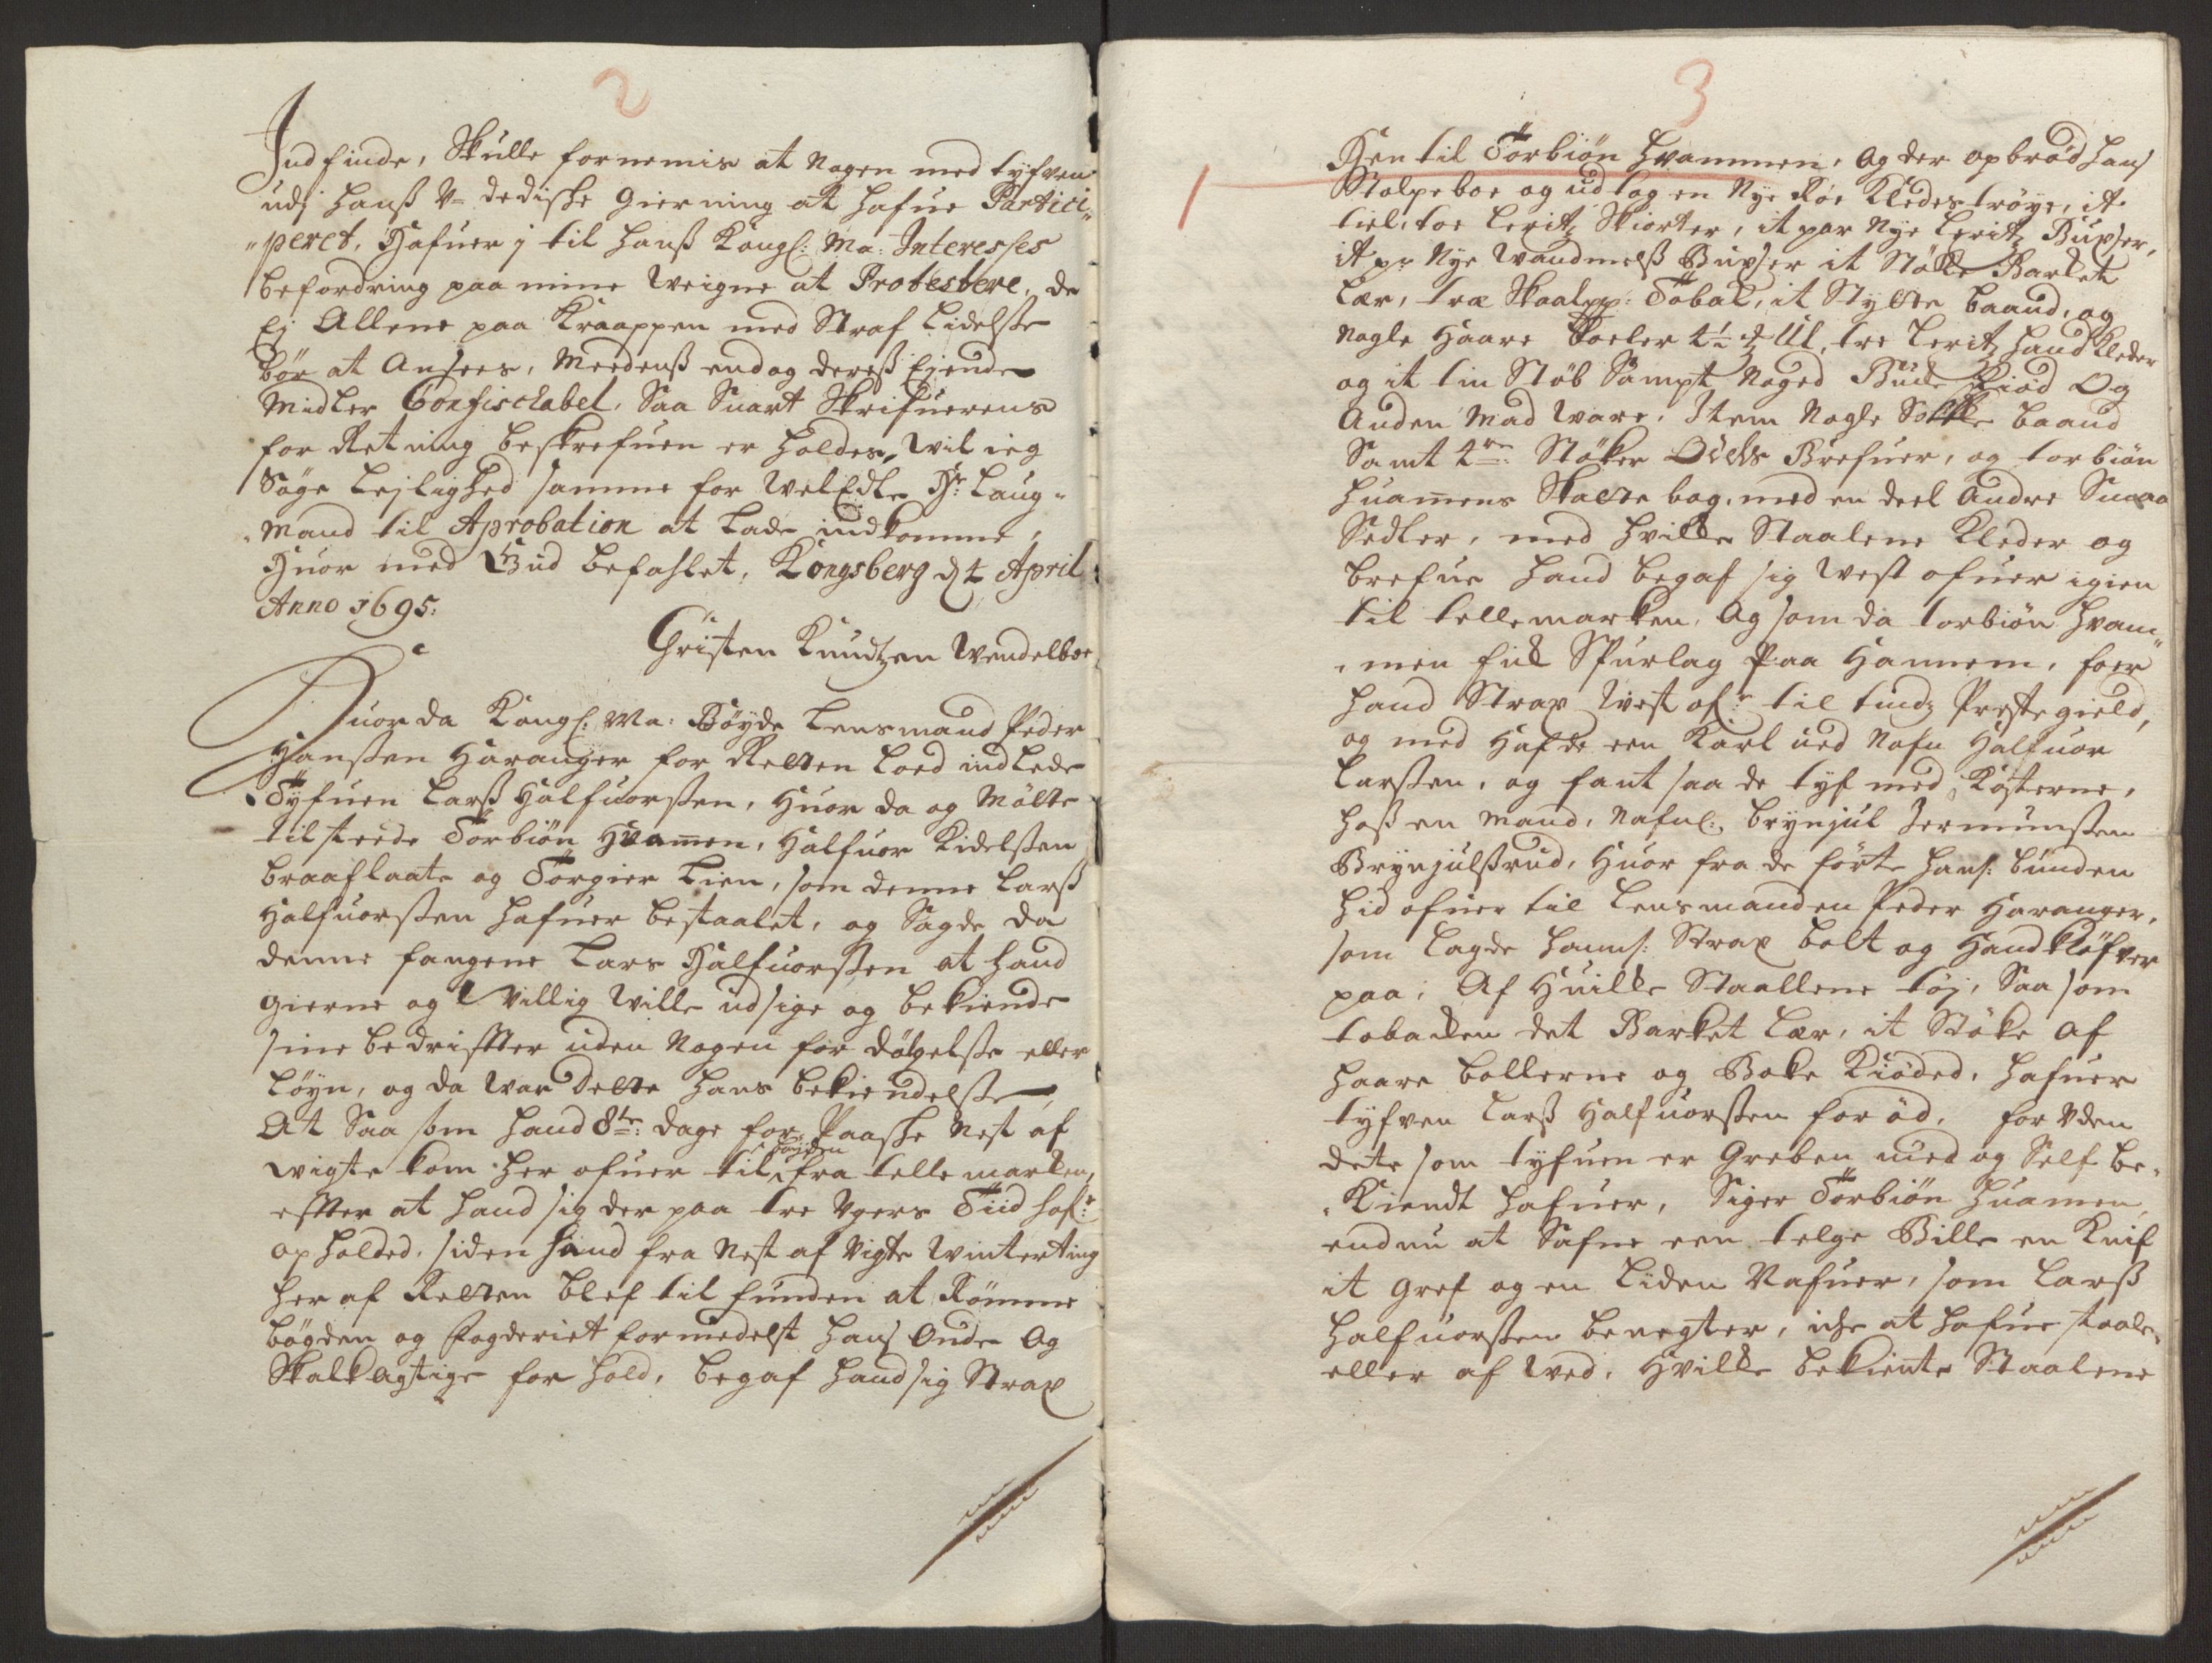 2
Indfinde, Skulle fornemis at Nogen med tyfven
udj hanß V=dediske Gierning at hafue Partici„
„peret, Hafuer j til hanß Kongl: Ma: Interesses
befordring paa mine Weigne at Protestere, de
Ej Allene paa Kroppen med Straf Lidelße
bør at Ansees, Meedenß endog dereß Eiende
Midler Confischabel, Saa Snart Skrifuerens
for Retning beskrefuen er holden, wil ieg
Søge Lejlighed samme for WelEdle Hr: Laug„
„mand til Aprobation at Lade indkomme,
Huor med Gud befahlet, Kongsberg d 4 April
Anno 1695:
Christen Knudtzen Wendelboe
Huor da Kongl: Ma: Böyde Lensmand Peder
Hanßen Haranger for Retten Loed indLede
Tyfuen Larß Halfuorßen, Huor da og Mötte
tilstede Torbiön Huamen, Halfuor Kidelßen
braaflaate og Torgier Lien, som denne Larß
Halfuorßen hafuer bestaalet, og Sagde da
denne fangene Lars Halfuorßen at hand
gierne og Villig Wille udsige og bekiende
sine bedriffter uden Nogen for dölgelße eller
Löyn, og da war dette hans bekiendelße,
At Saa som hand 8te: dage for Paaske Nest af
wigte kom her ofuer til bøyden fra tellemarken,
effter at hand sig der paa tre Vgers Tiid hafr:
opholded, siden hand fra Nest af Vigte Winterting
her af Retten blef til funden at Römme
bögden og fogderiet formedelst hans Onde Og
Skalkagtige for hold, begaf hand sig Strax
3
1
Hen til Torbiön Hvammen, Og der opbröd hans
Stolpeboe og udtog en Nye Röe Kledeströye, it
tiel, toe Lerritz Skiorter, it par Nye Lerritz Buxser,
it pr Nye Wandmelß Buxser it Stökke Barket
Lær, tre Skaalpp: Tobak, it Stykke baand, og
Nogle Haare Toeler 4½ ℔ Ul, tre Leritz Handkleder
og it tin Stöb Sampt Noged Bucke Kiöd Og
Anden Mad Ware, Item Nogle Sokke baand
Samt 4re: Stöker Odels Brefuer, og torbiön
Huamens Skatte bog, med en deel Andre Smaa
Sedler, med hville Staalene Kleder og
brefue hand begaf sig West ofuer igien
til tellemarken, Og som da torbiön Hvam„
„men fick Spurlag Paa Hannem, foer
hand Strax West ofr til tindz Prestegield,
og med Hafde een Karl ued Nafn Halfuor
Larßen, og fant saa de tyf med Kosterne,
hoß en Mand, Nafnl: Brynjul Jermunßen
Brynjulßrud, Huor fra de förte hans: bunden
hid ofuer til Lensmanden Peder Haranger,
som Lagde hanns: Strax bolt og Handklöfver
paa, Af Huilke Staallene töj, Saa som
tobakken det Barket Lær, it Stöke af
haare bollerne og Boke Kiöded, hafuer
tyfven Larß Halfuorßen for öd, for Vden
dete som tyfuen er Greben med og Self be„
„Kiendt hafuer, Siger Torbiön Huamen,
endnu at Safne een telge Bille en Knif
it Gref og en Liden Nafuer, som Larß
Halfuorßen benegter, icke at hafue staale„
eller af Wed, Hvilke bekiente Staalene